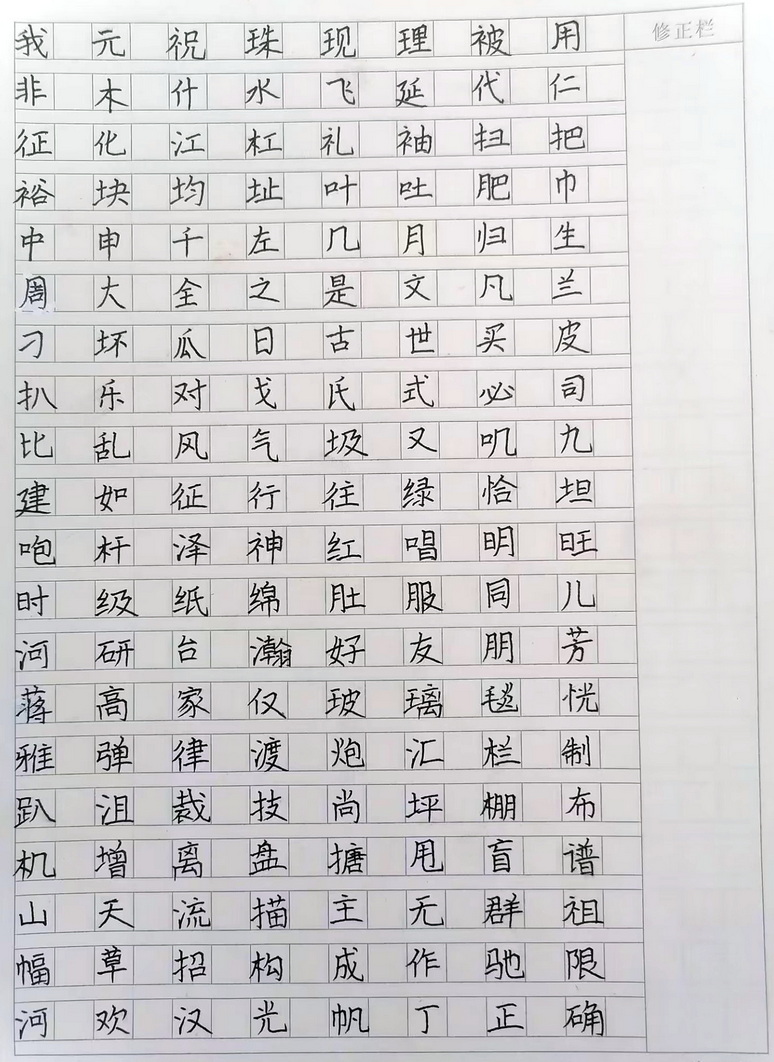 我 元 祝 珠 现 理 被 用 修正栏
非 木 什 水 飞 延 代 仁
征 化 江 杠 礼 袖 扫 把
裕 块 均 址 叶 吐 肥 巾
中 申 千 左 几 月 归 生
周 大 全 之 是 文 凡 兰
刁 坏 瓜 日 古 世 买 皮
扒 乐 对 戈 氏 式 必 司
比 乱 风 气 圾 又 叽 九
建 如 征 行 往 绿 恰 坦
咆 杆 泽 神 红 唱 明 旺
时 级 纸 绵 肚 服 同 儿
河 研 台 瀚 好 友 朋 芳
蒋 高 家 仅 玻 璃 毯 恍
雅 弹 律 渡 炮 汇 栏 制
趴 沮 裁 技 尚 坪 棚 布
机 增 离 盘 搪 甩 盲 谱
山 天 流 描 主 无 群 祖
幅 草 招 构 成 作 驰 限
河 欢 汉 光 帆 丁 正 确